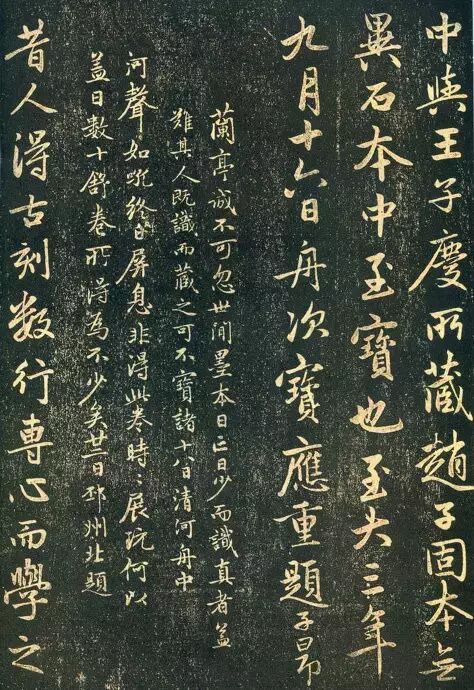 中與王子慶所藏趙子固本無
異石本中至寶也至大三年
九月十六日舟次寶應重題子昂
蘭亭誠不可忽世間墨本日亡日少而識真者蓋
難其人既識而藏之可不寶諸十八日清河舟中
河聲如吼終日屏息非得此卷時〻展玩何以
盖日數十舒卷所得為不少矣廿二日邳州北題
昔人得古刻數行專心而學之